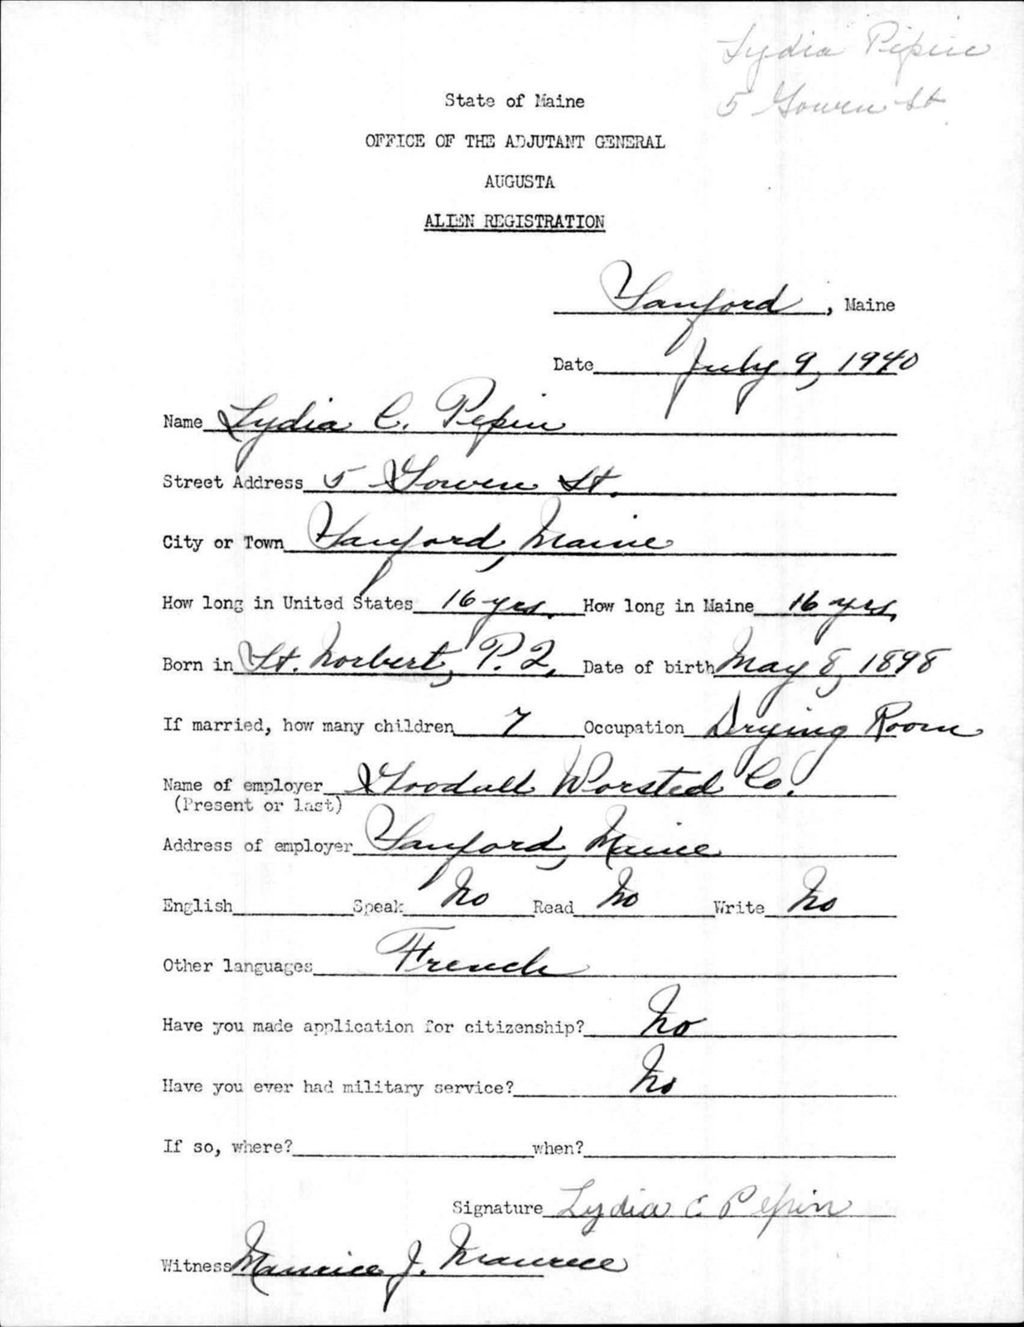 Lydia Pepin
5 Gowen St
State of Maine
OFFICE OF THE ADJUTANT GENERAL
AUGUSTA
ALIEN REGISTRATION
Sanford, Maine
Date July 9, 1940
Name Lydia C. Pepin
Street Address 5 Gowen St.
City or Town Sanford, Maine
How long in United States 16 yrs. How long in Maine 16 yrs.
Born in St. Norbert, P.Q. Date of birth May 8, 1898
If married, how many children 7 Occupation Drying Room
Name of employer Goodall Worsted Co.
(Present or last)
Address of employer Sanford, Maine
English Speak No Read No Write No
Other languages French
Have you made application for citizenship? No
Have you ever had military service? No
If so, where? when?
Signature Lydia C Pepin
Witness Maurice J.